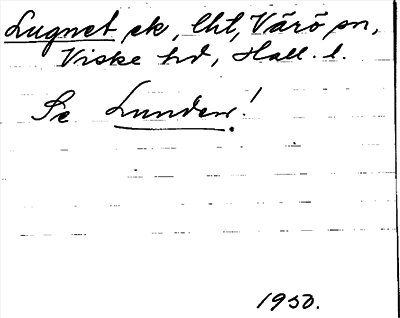 Lugnet, ek, lhl, Värö sn,
Viske hd, Hall. l.
Se Lunden!
1950.